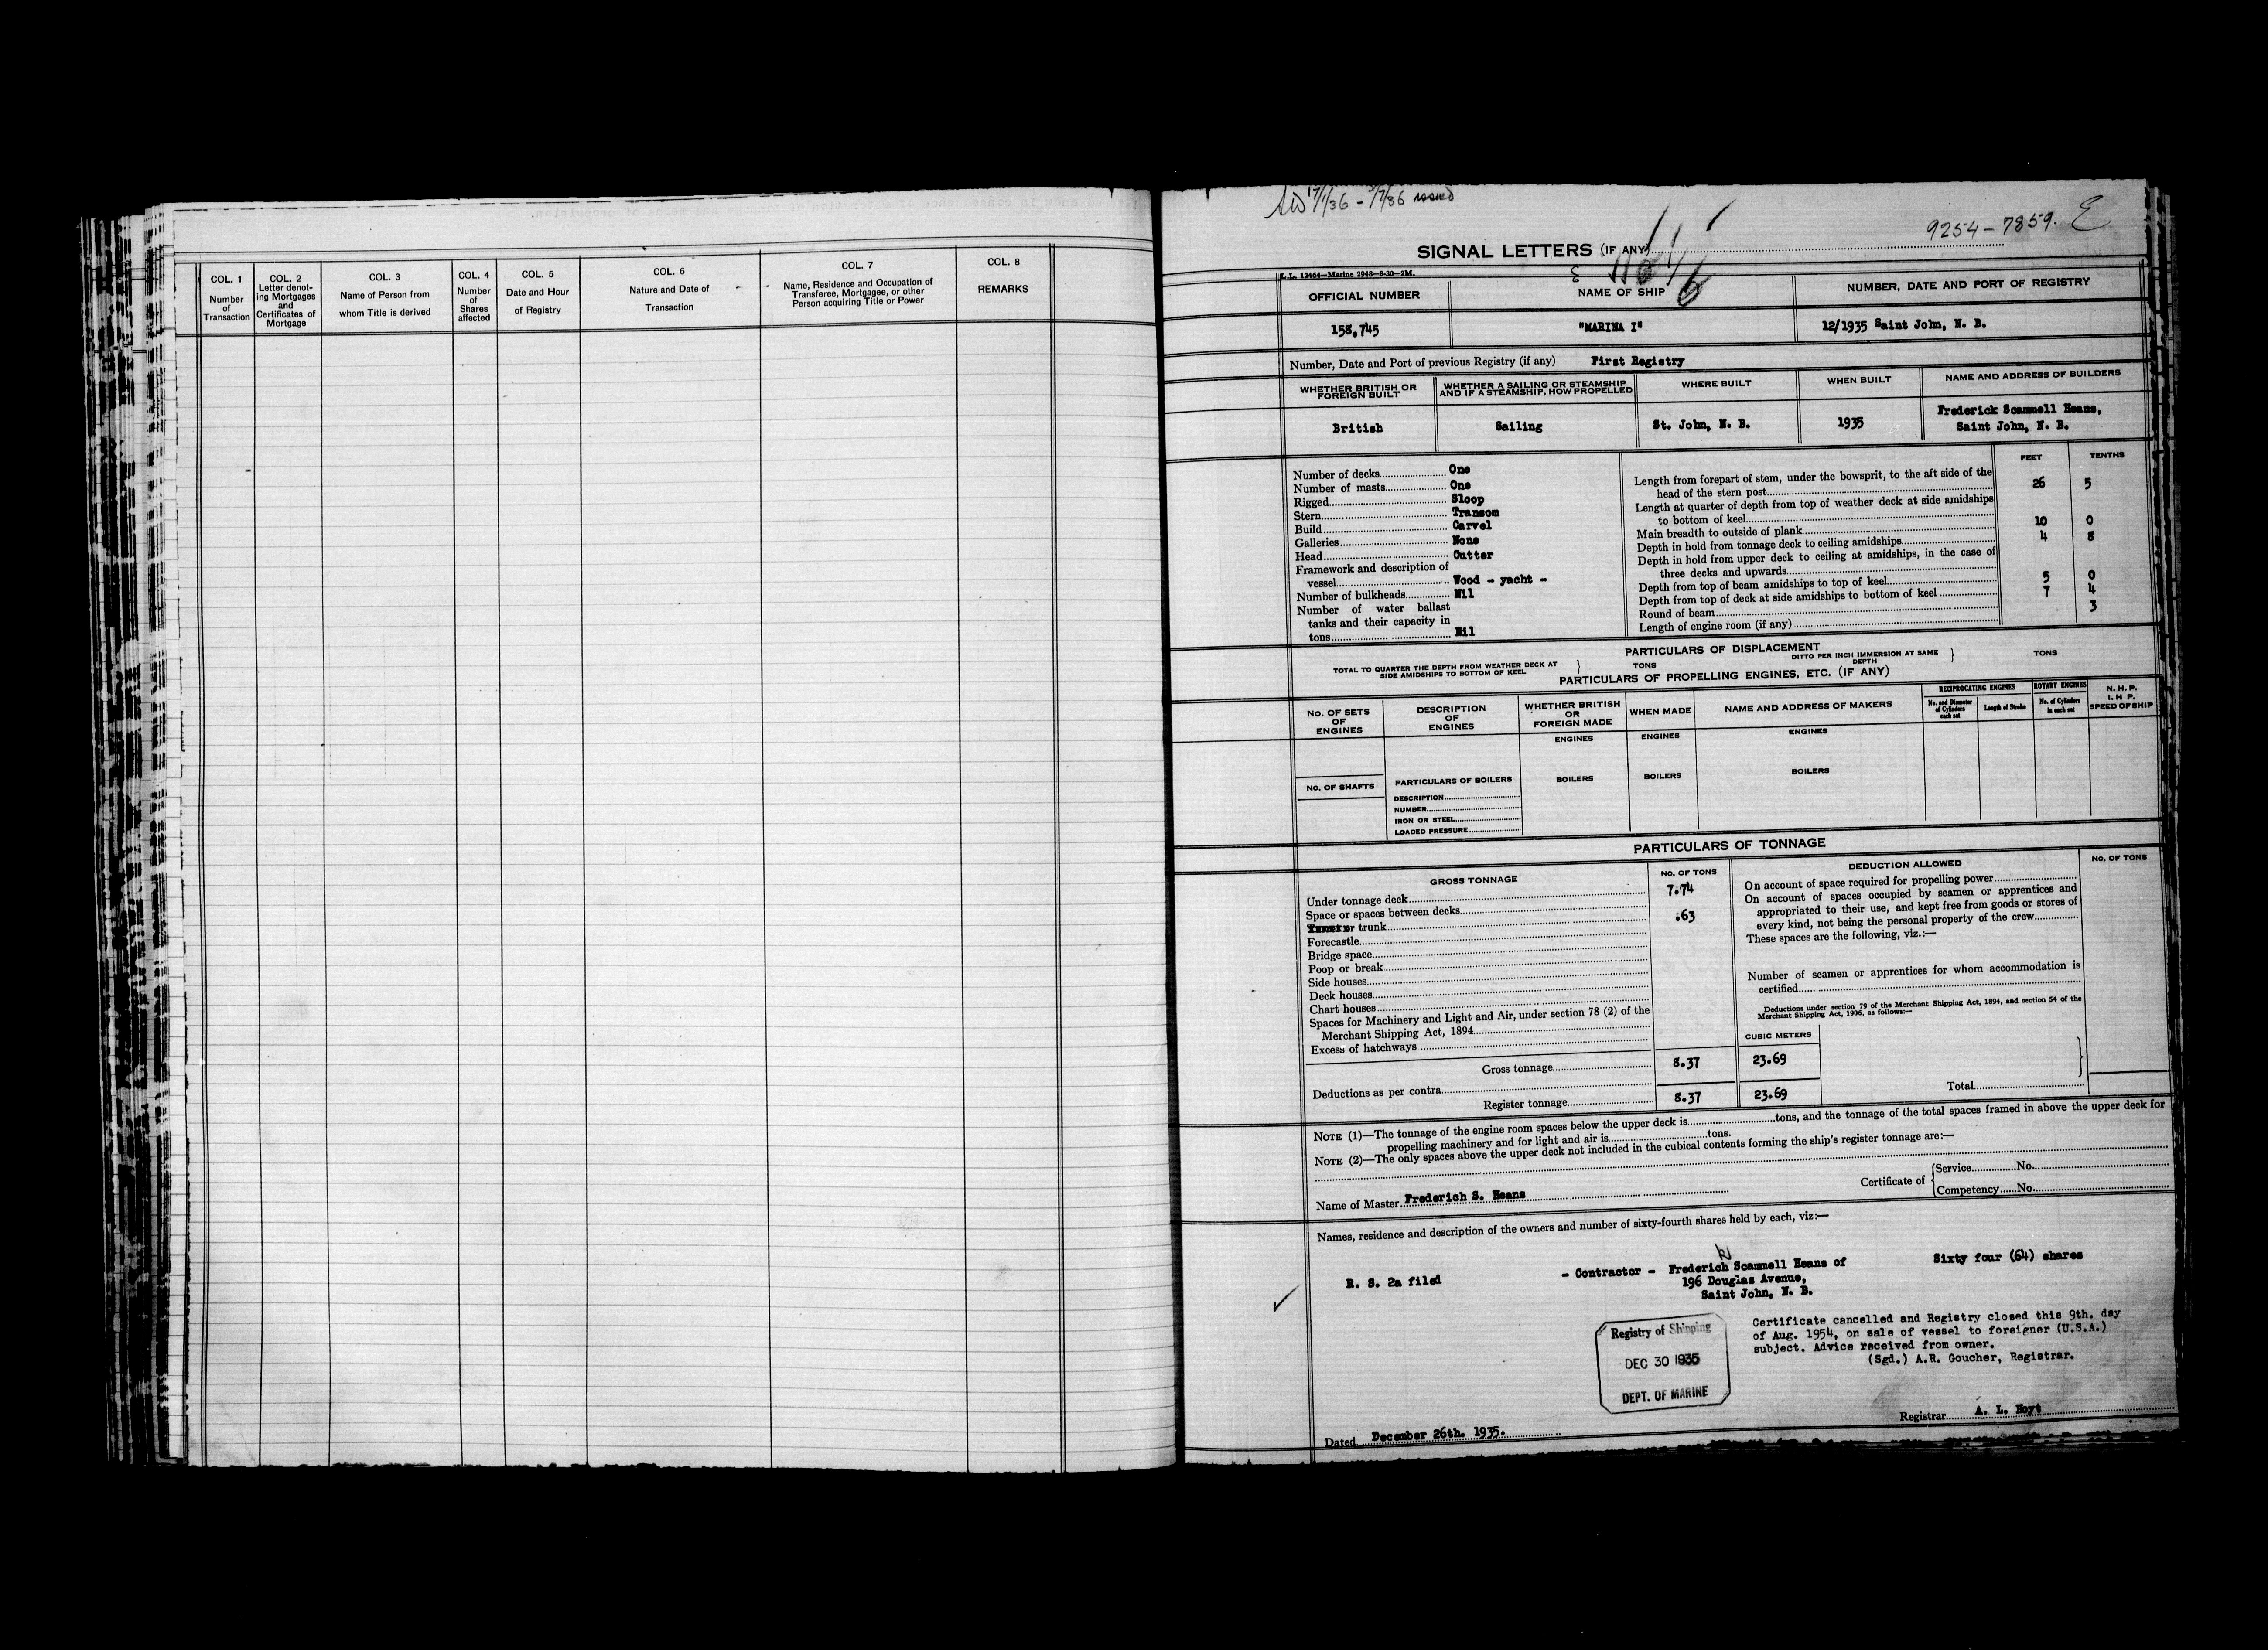 COL. 1
Number
of
Transaction
COL. 2
Letter denot-
ing Mortgages
and
Certificates of
Mortgage
COL. 3
Name of Person from
whom Title is derived
COL. 4
Number
of
Shares
affected
COL. 5
Date and Hour
of Registry
COL. 6
Nature and Date of
Transaction
COL. 7
Name, Residence and Occupation of
Transferee, Mortgagee, or other
Person acquiring Title or Power
COL. 8
REMARKS
17/1/36 - 3/7/36 issued
9254-7859. E
SIGNAL LETTERS (IF ANY)
L. L. 12464—Marine 2948—8-30—2M.
OFFICIAL NUMBER
NAME OF SHIP
NUMBER, DATE AND PORT OF REGISTRY
158,745
"MARINA I"
12/1935 Saint John, N. B.
Number, Date and Port of previous Registry (if any) First Registry
WHETHER BRITISH OR
FOREIGN BUILT
WHETHER A SAILING OR STEAMSHIP
AND IF A STEAMSHIP, HOW PROPELLED
WHERE BUILT
WHEN BUILT
NAME AND ADDRESS OF BUILDERS
British
Sailing
St. John, N. B.
1935
Frederick Scammell Heans,
Saint John, N. B.
Number of decks One
Number of masts One
Rigged Sloop
Stern Transom
Build Carvel
Galleries None
Head Cutter
Framework and description of
vessel Wood - yacht -
Number of bulkheads Nil
Number of water ballast
tanks and their capacity in
tons Nil
FEET TENTHS
Length from forepart of stem, under the bowsprit, to the aft side of the
head of the stern post 26 5
Length at quarter of depth from top of weather deck at side amidships
to bottom of keel
Main breadth to outside of plank 10 0
Depth in hold from tonnage deck to ceiling amidships 4 8
Depth in hold from upper deck to ceiling at amidships, in the case of
three decks and upwards
Depth from top of beam amidships to top of keel 5 0
Depth from top of deck at side amidships to bottom of keel 7 4
Round of beam 3
Length of engine room (if any)
PARTICULARS OF DISPLACEMENT
TOTAL TO QUARTER THE DEPTH FROM WEATHER DECK AT
SIDE AMIDSHIPS TO BOTTOM OF KEEL
TONS
DITTO PER INCH IMMERSION AT SAME
DEPTH
TONS
PARTICULARS OF PROPELLING ENGINES, ETC. (IF ANY)
No. OF SETS
OF
ENGINES
DESCRIPTION
OF
ENGINES
WHETHER BRITISH
OR
FOREIGN MADE
WHEN MADE
NAME AND ADDRESS OF MAKERS
RECIPROCATING ENGINES
No. and Diameter
of Cylinders
each set
Length of Stroke
ROTARY ENGINES
No. of Cylinders
in each set
N. H. P.
I. H P.
SPEED OF SHIP
ENGINES
ENGINES
ENGINES
NO. OF SHAFTS
PARTICULARS OF BOILERS
BOILERS
BOILERS
BOILERS
DESCRIPTION
NUMBER
IRON OR STEEL
LOADED PRESSURE
PARTICULARS OF TONNAGE
GROSS TONNAGE
No. OF TONS
Under tonnage deck 7.74
Space or spaces between decks
or trunk .63
Forecastle
Bridge space
Poop or break
Side houses
Deck houses
Chart houses
Spaces for Machinery and Light and Air, under section 78 (2) of the
Merchant Shipping Act, 1894
Excess of hatchways
Gross tonnage 8.37 23.69
Deductions as per contra
Register tonnage 8.37 23.69
DEDUCTION ALLOWED
No. OF TONS
On account of space required for propelling power
On account of spaces occupied by seamen or apprentices and
appropriated to their use, and kept free from goods or stores of
every kind, not being the personal property of the crew
These spaces are the following, viz.:—
Number of seamen or apprentices for whom accommodation is
certified
Deductions under section 79 of the Merchant Shipping Act, 1894, and section 54 of the
Merchant Shipping Act, 1906, as follows:—
CUBIC METERS
Total
NOTE (1)—The tonnage of the engine room spaces below the upper deck is tons, and the tonnage of the total spaces framed in above the upper deck for
propelling machinery and for light and air is tons.
NOTE (2)—The only spaces above the upper deck not included in the cubical contents forming the ship's register tonnage are:—
Name of Master Frederich S. Heans
Certificate of
Service No.
Competency No.
Names, residence and description of the owners and number of sixty-fourth shares held by each, viz:—
k
R. S. 2a filed
- Contractor - Frederich Scammell Heans of
196 Douglas Avenue,
Saint John, N. B.
Sixty four (64) shares
Registry of Shipping
DEC 30 1935
DEPT. OF MARINE
Certificate cancelled and Registry closed this 9th. day
of Aug. 1954, on sale of vessel to foreigner (U.S.A.)
subject. Advice received from owner.
(Sgd.) A.R. Goucher, Registrar.
Dated December 26th. 1935.
Registrar A. L. Hoyt